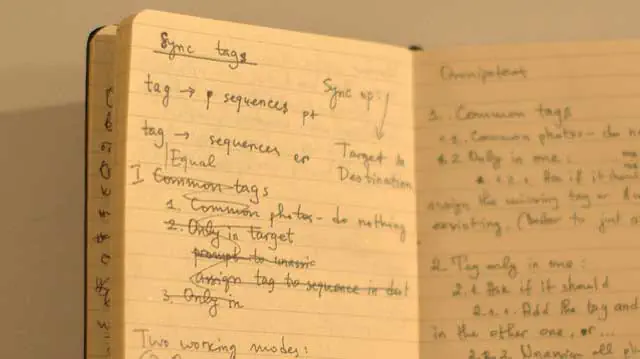 Sync tags
tag → p sequences pt
Sync op:
tag → sequences er
Target to
Destination
Equal
I Common tags
1. Common photos - do nothing
2. Only in target
prompt to unassign
assign tag to sequence in dest
3. Only in
Two working modes:
Omnipotent
1. Common tags
1.1. Common photos - do n
1.2. Only in one:
Ask if it should
assign the missing tag or
existing. (Better to just
2. Tag only in one:
2.1. Ask if it should
2.1.1. Add the tag and
in the other one, or ...
2.1.2. Unassign all ph